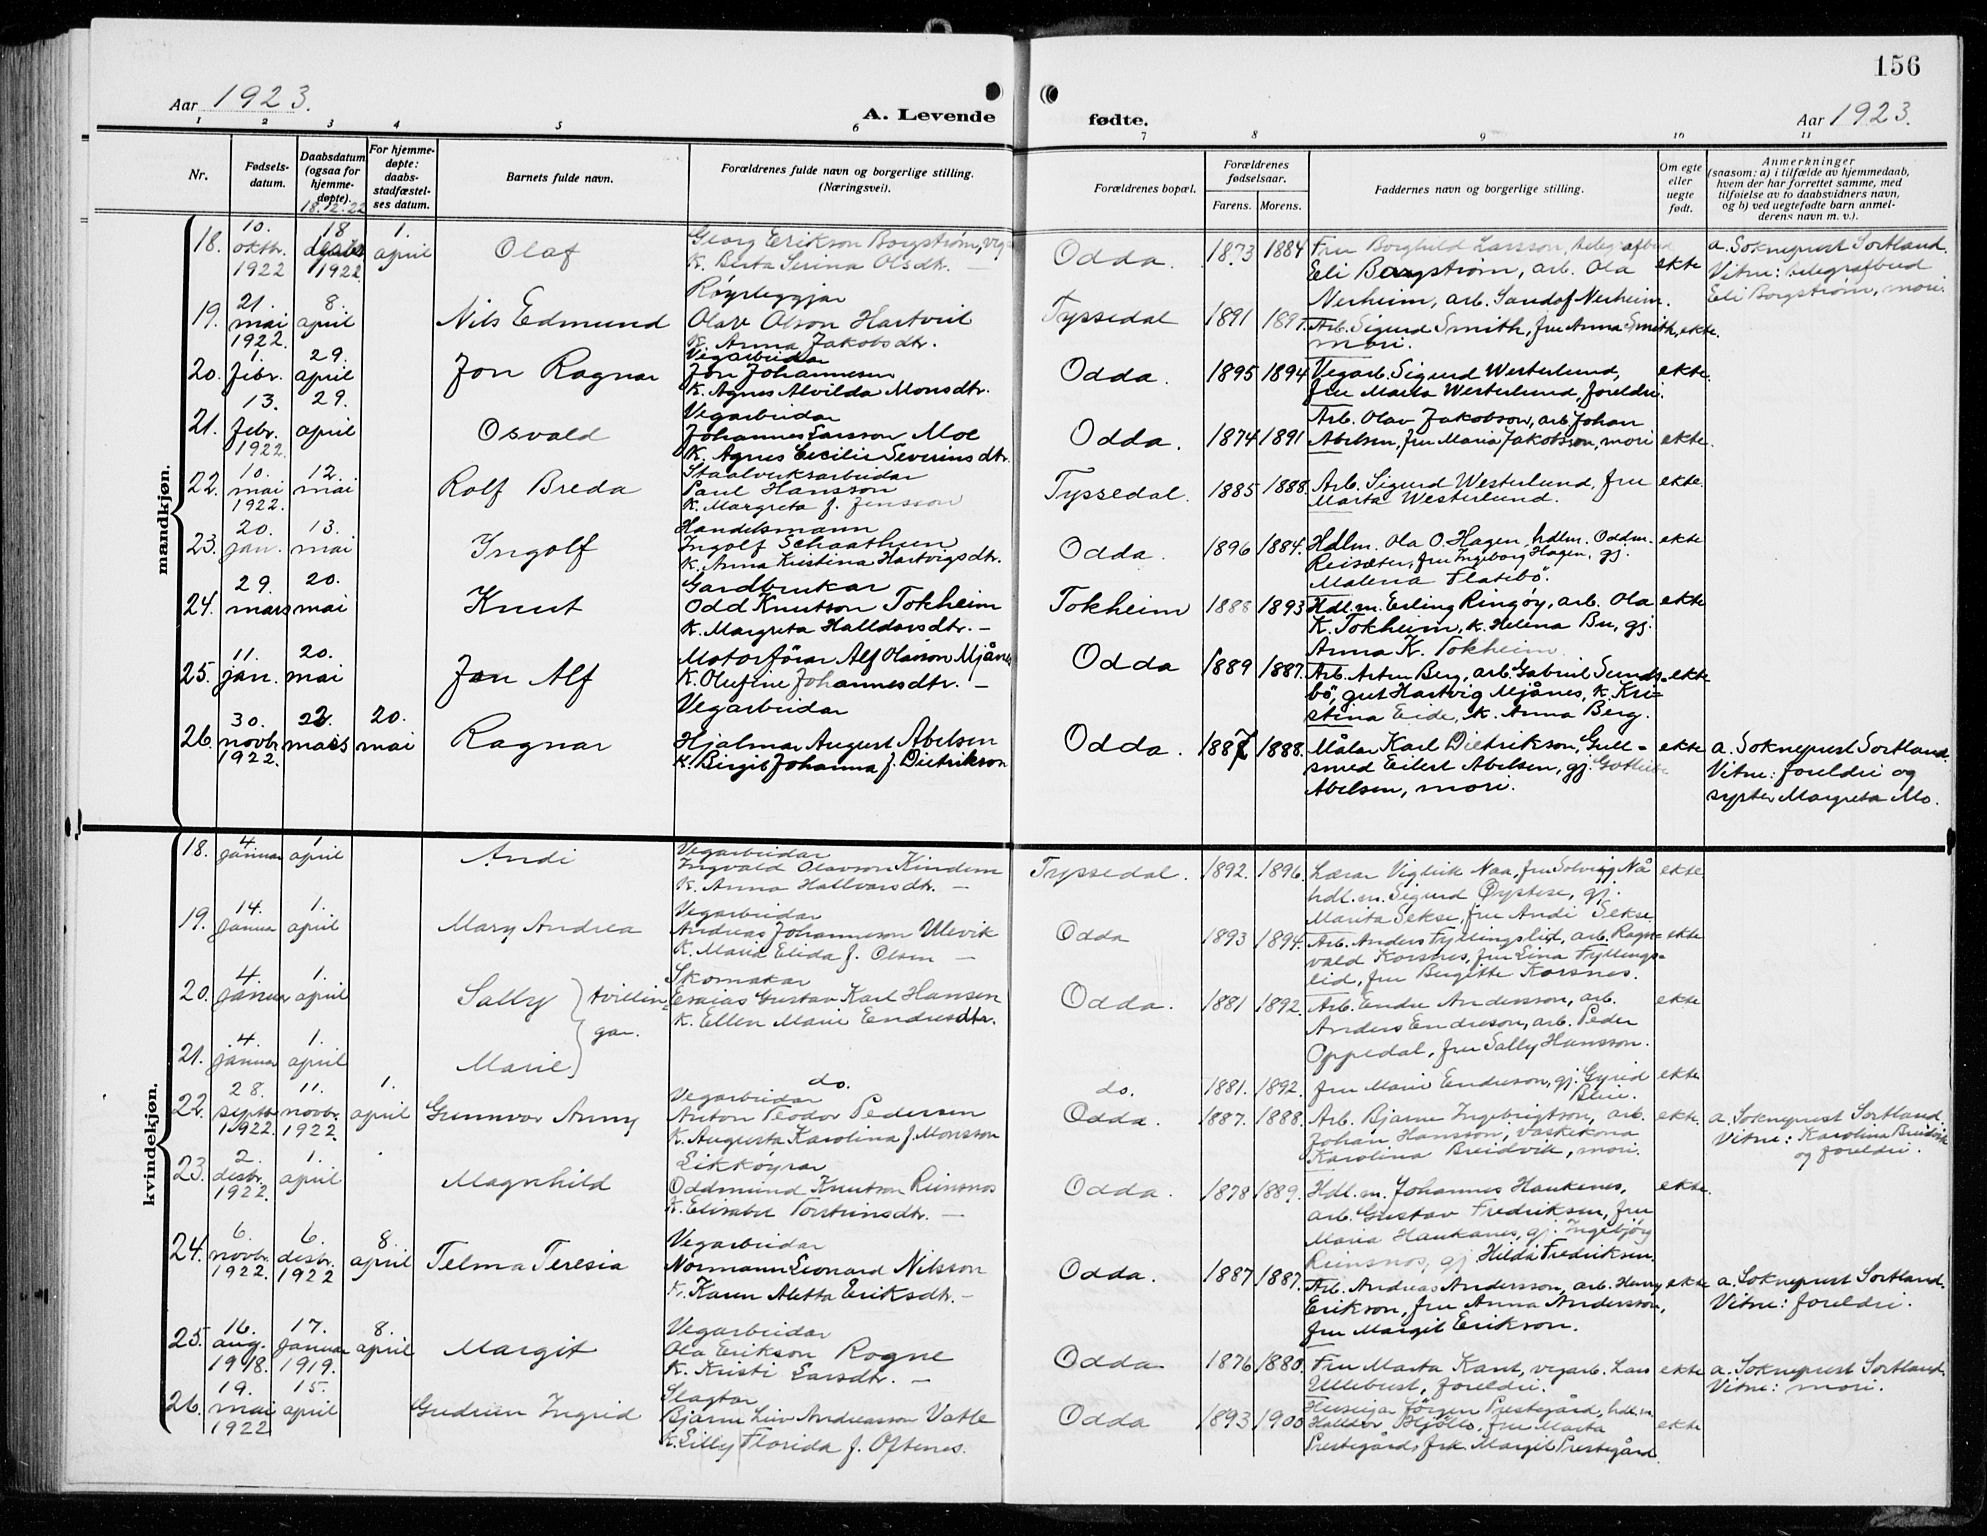 156
Aar 1923.
A. Levende
fødte.
Aar 1923.
1 2 3 4 5 6 7 8 9 10 11
Nr.
Fødsels-
datum.
Daabsdatum
(ogsaa for
hjemme-
døpte).
18.12.22
For hjemme-
døpte:
daabs-
stadfæstel-
ses datum.
Barnets fulde navn.
Forældrenes fulde navn og borgerlige stilling.
(Næringsvei).
Forældrenes bopæl.
Forældrenes
fødselsaar.
Farens. Morens.
Faddernes navn og borgerlige stilling.
Om egte
eller
uegte
født.
Anmerkninger
(saasom: a) i tilfælde av hjemmedaab,
hvem der har forrettet samme, med
tilføielse av to daabsvidners navn,
og b) ved uegtefødte barn anmel-
derens navn m. v.).
mandkjøn.
18. 10. oktbr. 1922 18 1922 1. april Olaf
Georg Erikson Borgstrøm,
K. Berta Serina Olsdtr. —
Odda. 1873 1884 Fru Borghild Larsson, telegrafbud
Eli Borgstrøm, arb. Ola
Nerheim, arb. Sandof Nerheim.
ekte
a. Sokneprest Sortland.
Vitne: telegrafbud
Eli Borgstrøm, mori.
19. 21. mai 1922. 8. april Nils Edmund
Røyrleggjar
Olav Olson Hartveit
K. Anna Jakobsdtr.
Tyssedal 1891 1897. Arb. Sigurd Smith, fru Anna Smith, ekte.
mori.
20. 1. febr. 29. april Jon Ragnar
Vegarbeidar
Jon Johannesen
K. Agnes Alvilda Monsdtr.
Odda. 1895 1894 Vegarb. Sigurd Westerlund,
fru Marta Westerlund, foreldri.
ekte.
21. 13. febr. 1922. 29. april Osvald
Vegarbeidar
Johannes Larsson Moe
K. Agnes Cecilie Severinsdtr.
Odda. 1874 1891 Arb. Olav Jakobson, arb. Johan
Abelsen, fru Maria Jakobsson, mori ekte.
22. 10. mai 1922. 12. mai Rolf Breda
Staalverksarbeidar
Paul Hansson
K. Margreta f. Jensson
Tyssedal. 1885 1888. Arb. Sigurd Westerlund, fru
Marta Westerlund.
ekte.
23. 20. jan. 13. mai Ingolf
Handelsmann
Ingolf Schaathun
K. Anna Kristina Hartvigsdtr.
Odda. 1896 1884. Hdlm. Ola O. Hagen, hdlm. Oddm.
Reisæter, fru Ingeborg Hagen, gj.
Malena Flatebö.
ekte
24. 29. mars 20. mai Knut
Gardbrukar
Odd Knutson Tokheim
K. Margreta Halldorsdtr. —
Tokheim 1888 1893 Hdl.m. Erling Ringöy, arb. Ola
K. Tokheim, k. Helena Bu, gj.
Anna K. Tokheim.
ekte
25. 11. jan. 20. mai Jon Alf
Motorförar Alf Olavson Mjånes
K. Olufine Johannesdtr. —
Odda 1889 1887. Arb. Artur Berg, arb. Gabriel Sunds-
bö, gut Hartvig Mjånes, k. Kri-
stina Eide, k. Anna Berg.
ekte
26. 30. novbr. 1922. 22. mars 20. mai Ragnar
Vegarbeidar
Hjalmar August Abelsen
K. Birgit Johanna f. Dietrikson
Odda. 1887 1888. Målar Karl Dietrikson, Gull-
smed Eilert Abelsen, gj. Gotliebe
Abelsen, mori.
ekte
a. Sokneprest Sortland.
Vitne: foreldri og
syster Margreta Mo.
kvindekjøn.
18. 4. januar 1. april Andi
Vegarbeidar
Ingvald Olavson Kindem
K. Anna Hallvarsdtr. —
Tyssedal. 1892. 1896. Lærar Vigleik Naa, fru Solveig Nå
hdl.m. Sigurd Øystese, gj.
Marita Sekse, fru Andi Sekse.
ekte
19. 14. januar 1. april Mary Andrea
Vegarbeidar
Andreas Johanneson Ulevik
K. Maria Elida f. Olsen —
Odda 1893 1894. Arb. Anders Fyllingslid, arb. Ragn-
vald Korsnes, fru Lina Fyllings-
lid, fru Birgitte Korsnes.
ekte
20. 4. januar 1. april Sally tvillin-
gar.
Skomakar
Esaias Gustav Karl Hansen
K. Ellen Marie Endresdtr.
Odda. 1881 1892. Arb. Endre Andersson, arb.
Anders Endreson, arb. Peder
Oppedal, fru Sally Hansson.
ekte
21. 4. januar 1. april Marie do. do. 1881. 1892. fru Marie Endreson, gj. Gyrid
Bleie.
ekte
22. 28. septbr. 1922. 11. novbr. 1922. 1. april Gunnvor Anny
Vegarbeidar
Anton Peodor Pedersen
K. Augusta Karolina f. Monsson
Odda. 1887. 1888. Arb. Bjarne Ingebrigtson, arb.
Johan Hansson, vaskekona
Karolina Breidvik, mori.
ekte.
a. Sokneprest Sortland.
Vitne: Karolina Breidvik
og foreldri.
23. 2. desbr. 1922. 1. april Magnhild
Likköyrar
Oddmund Knutson Reinsnos
K. Elisabet Torsteinsdtr. —
Odda. 1878 1889. Hdl.m. Johannes Haukenes,
arb. Gustav Fredriksen, fru
Maria Haukanes, gj. Ingebjörg
Reinsnos, gj. Hilda Fredriksen.
ekte.
24. 6. novbr. 1922. 6. desbr. 1922 8. april Telma Teresia
Vegarbeidar
Normann Leonard Nilsson
K. Karen Aletta Eriksdtr. —
Odda. 1887 1887. Arb. Andreas Andersson, arb. Henry
Erikson, fru Anna Andersson,
fru Margit Erikson.
ekte
a. Sokneprest Sortland.
Vitne: foreldri.
25. 16. aug. 1918. 17. januar 1919. 8. april Margit
Vegarbeidar
Ola Erikson Rogne
K. Kristi Larsdtr. —
Odda 1876 1880. Fru Marta Kant, vegarb. Lars
Ullebust, foreldri.
ekte
a. Sokneprest Sortland.
Vitne: mori.
26. 19. mai 1922 15. april Gudrun Ingrid
Slagtar
Bjarne Leiv Andreasson Vatle
K. Lilly Florida f. Oftenes.
Odda 1893 1900 Huseigar Jörgen Prestegård, hdl.m.
Halldor Hjöllo, fru Marta
Prestegård, frk. Margit Prestegård.
ekte